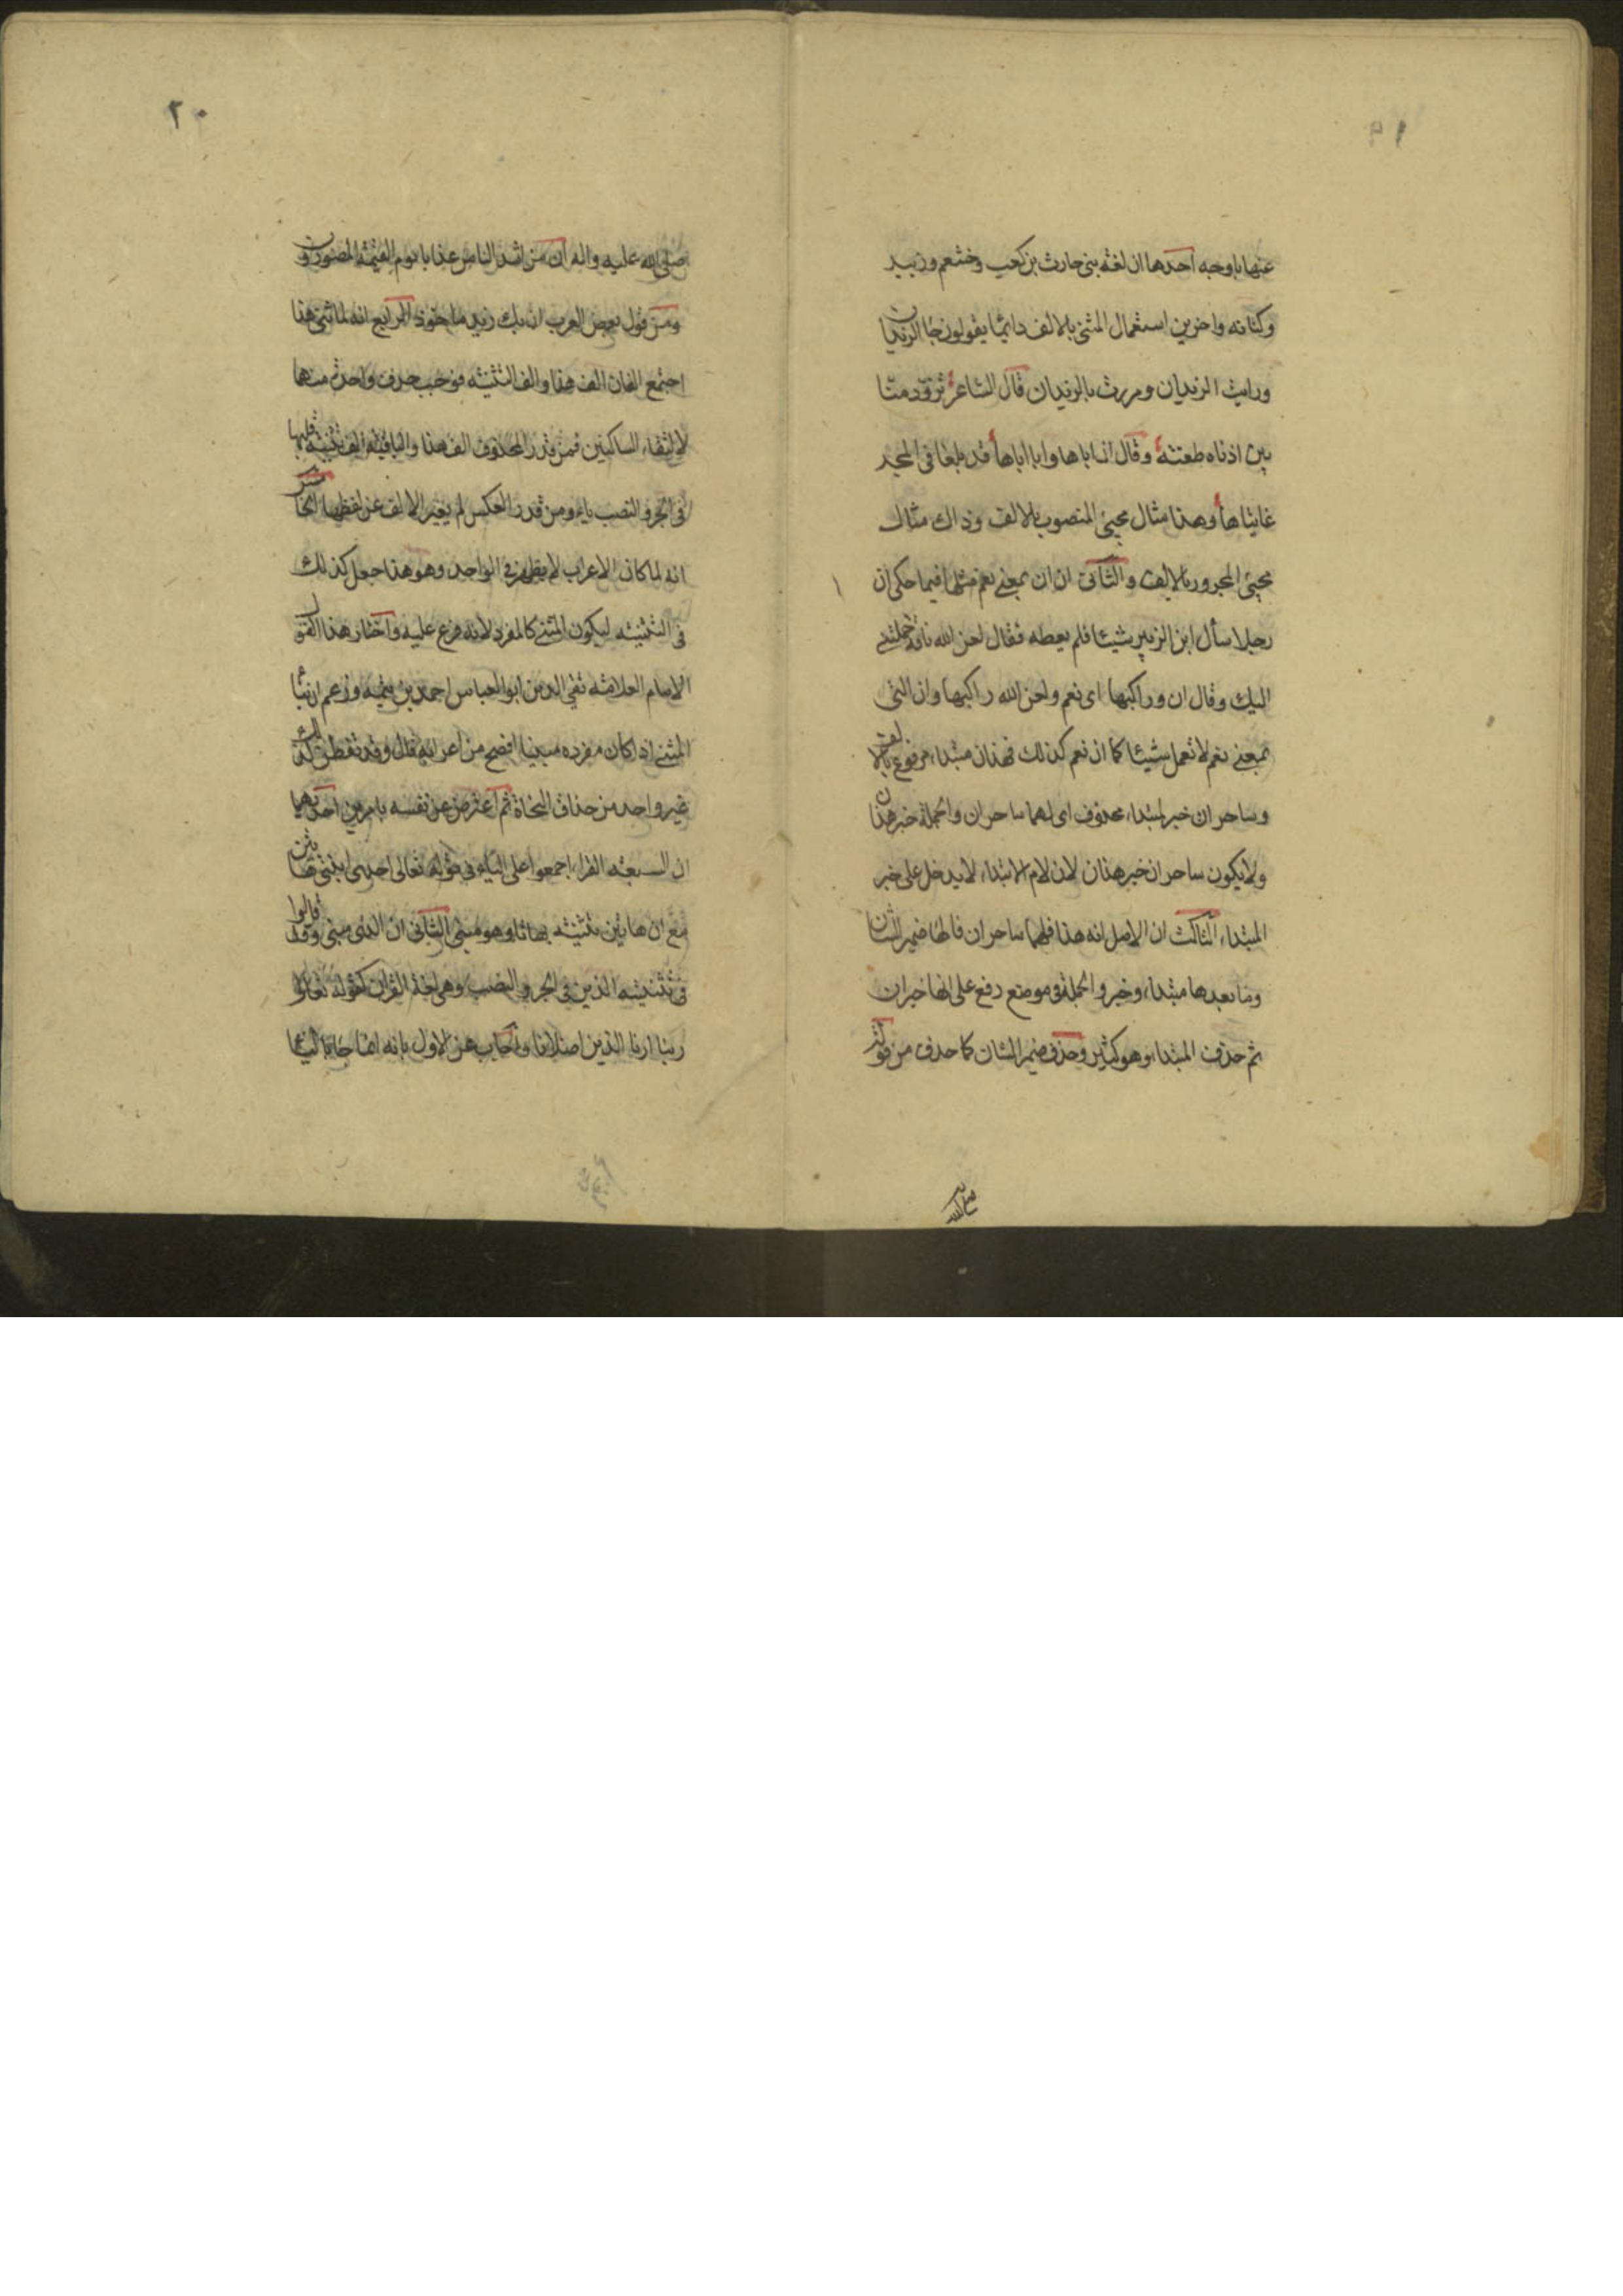 ١٩
عنها باوجه احدها ان لغة بنى حارث بن كعب وخثعم وزبيد
وكنانه واخرين استعمال المثنى بالالف دائما يقولون جا الزيدان
ورايت الزيدان ومررت بالزيدان قال الشاعر تزوّد منّا
بين اذناه طعنته وقال ان اباها وابا اباها قد بلغا فى المجد
غايتاها وهذا مثال مجيئ المنصوب بالالف وذاك مثال
مجيئ المجرور بالالف والثانى ان ان بمعنى نعم مثلها فيما حكى ان
رجلا سأل ابن الزبير شيئا فلم يعطه فقال لعن الله ناقة حملتنى
اليك وقال ان وراكبها اى نعم ولعن الله راكبها وان التى
بمعنى نعم لا تعمل شيئا كما ان نعم كذلك فهذان مبتداء مرفوع بالالف
وساحران خبر لمبتداء محذوف اى لهما ساحران والجملة خبر هذان
ولا يكون ساحران خبر هذان لان لام الابتداء لا يدخل على خبر
المبتداء الثالث ان الاصل انه هذا فلهما ساحران فالها ضمير الشان
وما بعدها مبتداء وخبر والجملة فى موضع رفع على انها خبر ان
ثم حذف المبتداء وهو كثير وحذف ضمير الشان كما حذف من قوله
٢٠
صلى الله عليه واله ان من اشد الناس عذابا يوم القيمة المصورون
ومن قول بعض العرب ان بك زيد ماخوذ الرابع انه لما ثنى هذا
اجتمع الفان الف هذا والف التثنيته فوجب حذف واحدة منها
لالتقاء الساكنين فمن قدر المحذوف الف هذا والباقية الف تثنيته قلبها
فى الجر والنصب ياء ومن قدر العكس لم يغير الالف عن لفظها الخامس
انه لما كان الاعراب لا يظهر فى الواحد وهو هذا جعل كذلك
فى التثنيته ليكون المثنى كالمفرد لانه فرع عليه واختار هذا القول
الامام العلامته تقى الدين ابو العباس احمد بن تيميه وزعم ان بنا
المثنى اذا كان مفرده مبنيا افصح من اعرابه قال وقد تفطن لذلك
غير واحد من حذاق النحاة ثم اعترض عن نفسه بامرين احدهما
ان السبعته القراء اجمعوا على الياء فى قوله تعالى احدى ابنتى هاتين
مع ان هاتين تثنيته هاتا وهو مبنى الثانى ان الذى مبنى وقد قالوا
فى تثنيته الذين فى الجر والنصب وهى لغة القران كقوله تعالى
ربنا ارنا الذين اضلانا واجاب عن الاول بانه انما جا بالياء